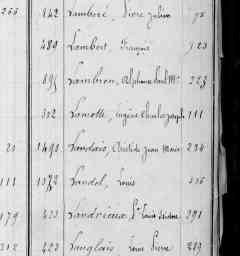 266 142 Lambert, Pierre Julien 78
489 Lambert, François 123
895 Lambron, Alphonse Paul Me 263
312 Lamotte, Eugène Charles Joseph 111
21 1490 Landais, Aristide Jean Marie 234
111 1372 Landel, Louis
179 423 Landriaux, 291
212 423 Langlais, Louis Pierre 289